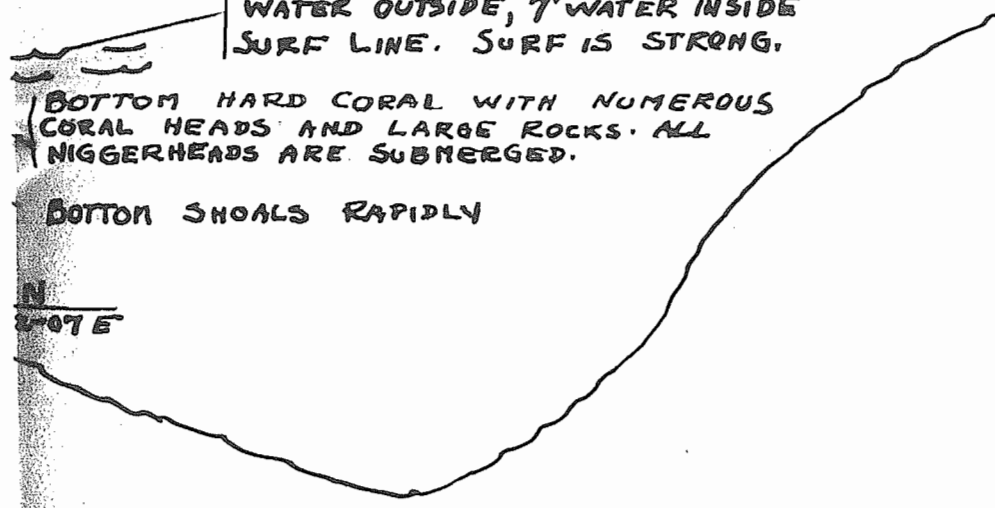 WATER OUTSIDE, 7' WATER INSIDE
SURF LINE. SURF IS STRONG.
BOTTOM HARD CORAL WITH NUMEROUS
CORAL HEADS AND LARGE ROCKS. ALL
NIGGERHEADS ARE SUBMERGED.
BOTTOM SHOALS RAPIDLY
N
-07 E